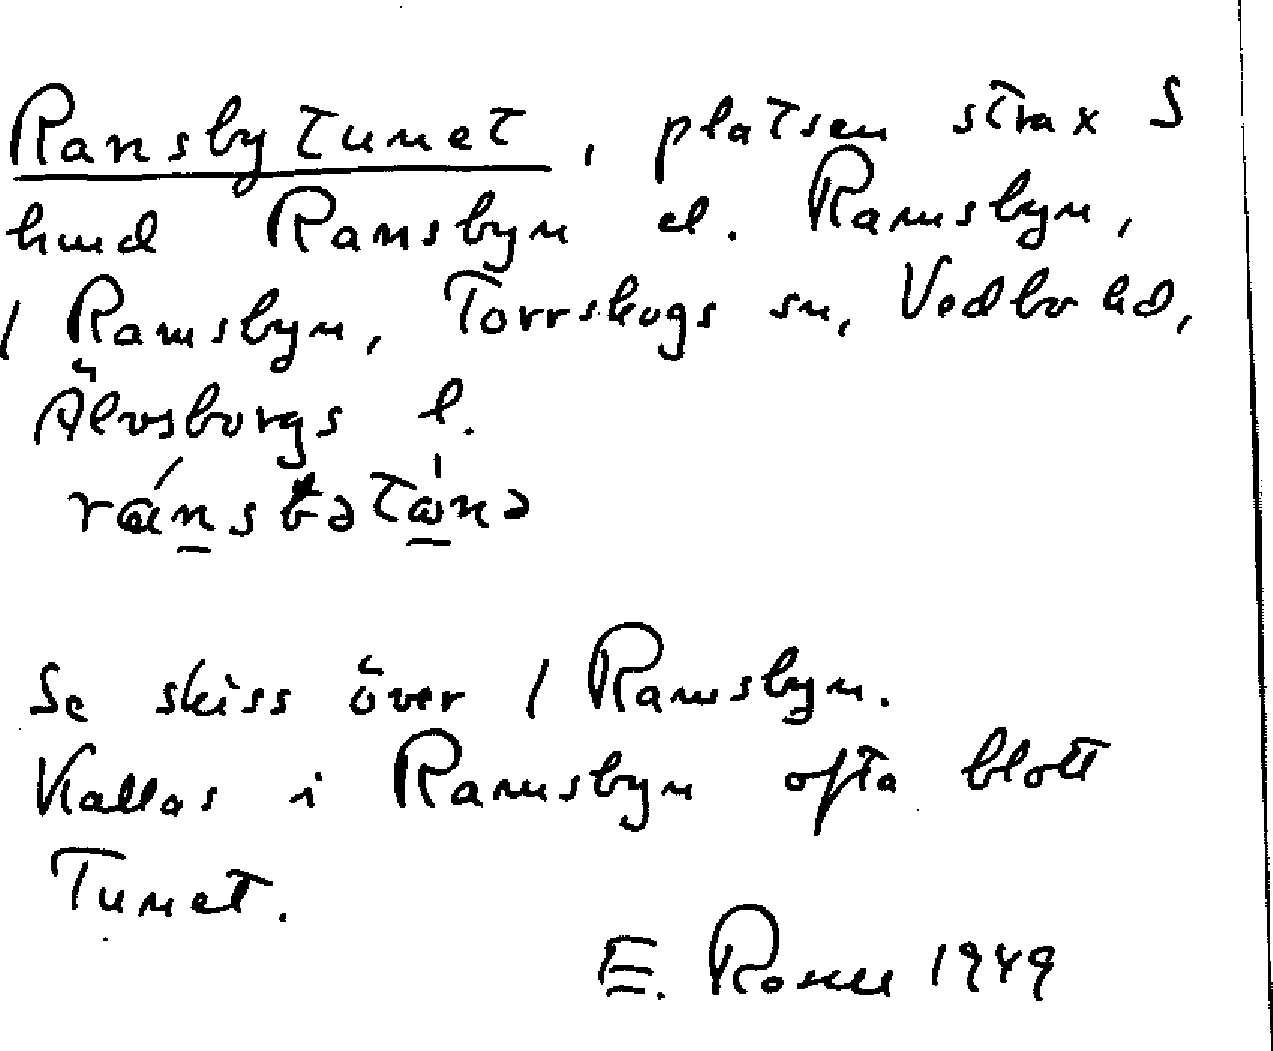 Ransbytunet, platsen strax S
hmd Ransbyn el. Ramsbyn,
1 Ramsbyn, Torrskogs sn, Vedbo hd,
Älvsborgs l.
Se skiss över 1 Ramsbyn.
Kallas i Ramsbyn ofta blott
Tunet.
E. Rosell 1949